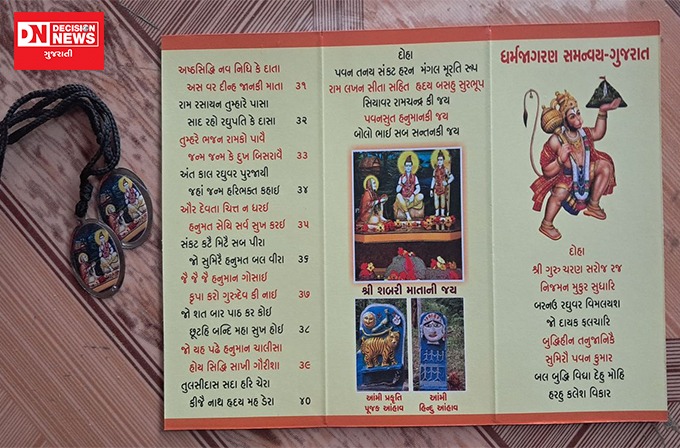 DN DECISION NEWS
ગુજરાતી
અષ્ઠસિદ્ધિ નવ નિધિ કે દાતા
અસ વર દીન્હ જાનકી માતા ૩૧
રામ રસાયન તુમ્હારે પાસા
સાદ રહો રઘુપતિ કે દાસા ૩૨
તુમ્હરે ભજન રામકો પાવૈ
જન્મ જન્મ કે દુખ બિસરાવૈ ૩૩
અંત કાલ રઘુવર પુરજાયી
જહાં જન્મ હરિભક્ત કહાઈ ૩૪
ઔર દેવતા ચિત્ત ન ધરઈ
હનુમત સેયિ સર્વ સુખ કરઈ ૩૫
સંકટ કટૈ મિટૈ સબ પીરા
જો સુમિરૈ હનુમત બલ વીરા ૩૬
જૈ જૈ જૈ હનુમાન ગોસાઈ
કૃપા કરો ગુરુદેવ કી નાઈ ૩૭
જો શત બાર પાઠ કર કોઈ
છૂટહિ બન્દિ મહા સુખ હોઈ ૩૮
જો યહ પઢે હનુમાન ચાલીસા
હોય સિદ્ધિ સાખી ગૌરીશા ૩૯
તુલસીદાસ સદા હરિ ચેરા
કીજૈ નાથ હૃદય મહ ડેરા ૪૦
દોહા
પવન તનય સંકટ હરન મંગલ મૂરતિ રૂપ
રામ લખન સીતા સહિત હૃદય બસહુ સુરભૂપ
સિયાવર રામચન્દ્ર કી જય
પવનસુત હનુમાનકી જય
બોલો ભાઈ સબ સન્તનકી જય
શ્રી શબરી માતાની જય
આંમી પ્રકૃતિ
પૂજક આંહાવ
આંમી
હિન્દુ આંહાવ
ધર્મજાગરણ સમન્વય-ગુજરાત
દોહા
શ્રી ગુરુ ચરણ સરોજ રજ
નિજમન મુકુર સુધારિ
બરનઉ રઘુવર વિમલયશ
જો દાયક ફલચારિ
બુદ્ધિહીન તનુજાનિકે
સુમિરૌ પવન કુમાર
બલ બુદ્ધિ વિદ્યા દેહુ મોહિ
હરહુ કલેશ વિકાર